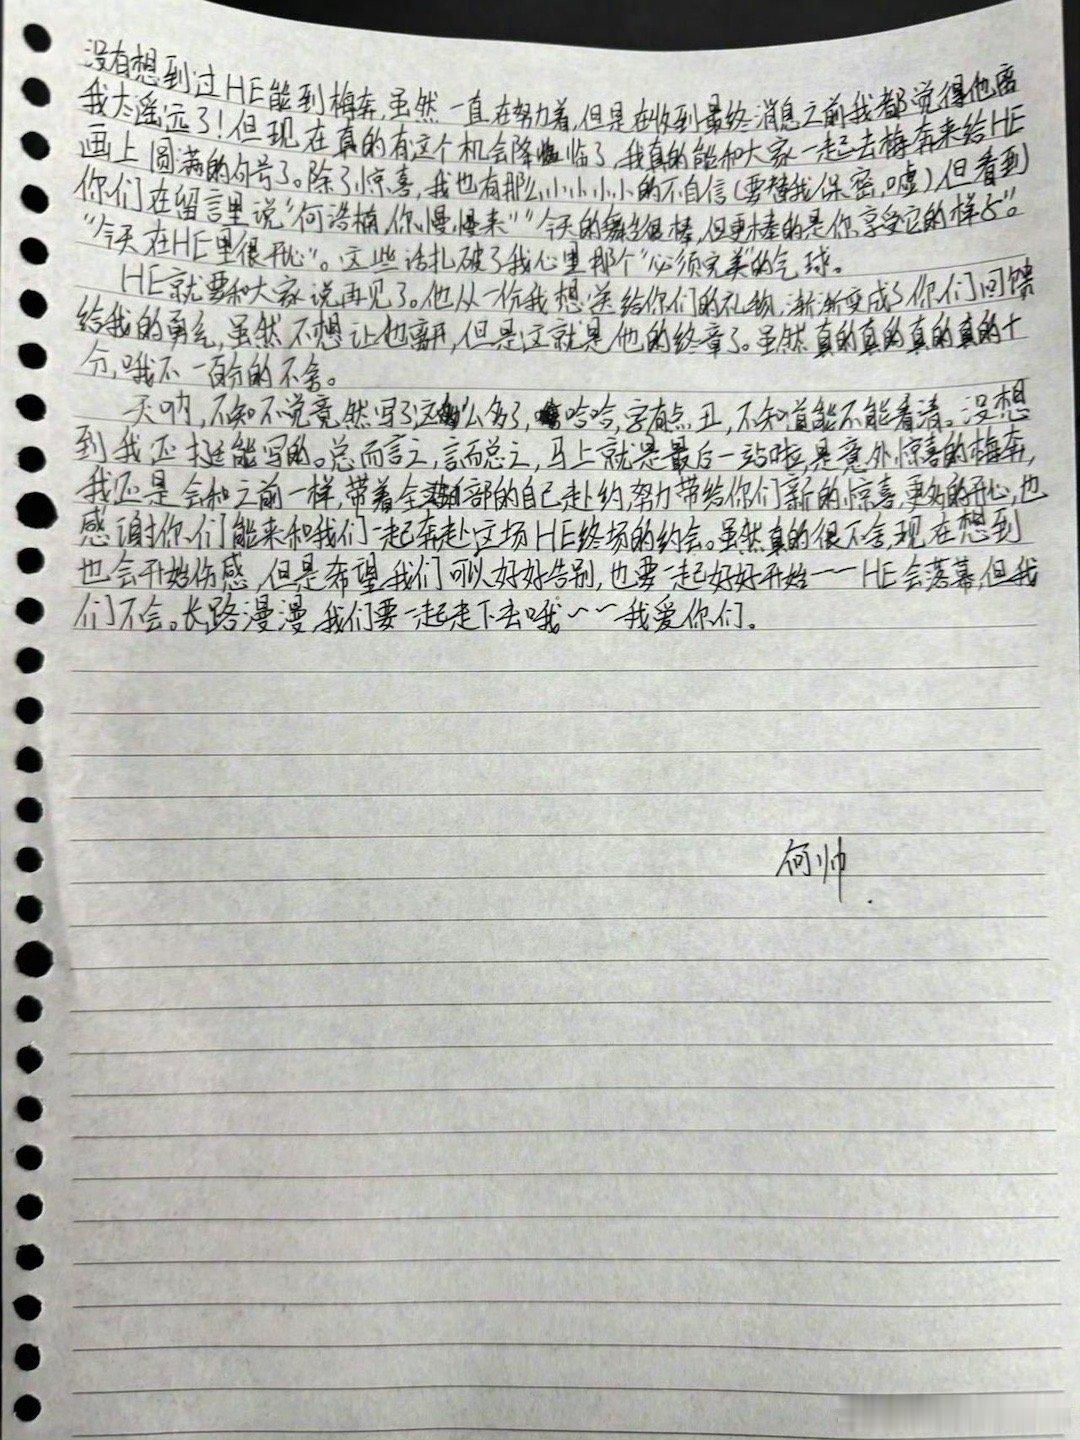 没有想到过HE能到梅奔,虽然一直在努力着,但是在收到最终消息之前我都觉得他离
我太遥远了!但现在真的有这个机会降临了,我真的能和大家一起去梅奔来给HE
画上圆满的句号了。除了惊喜,我也有那么小小小小的不自信(要替我保密,嘘)但看到
你们在留言里说"何浩楠,你慢慢来""今天的舞台很棒,但更棒的是你享受它的样子"。
"今天在HE里很开心"。这些话扎破了我心里那个"必须完美"的气球。
HE就要和大家说再见了。他从一份我想送给你们的礼物,渐渐变成了你们回馈
给我的勇气,虽然不想让他离开,但是这就是他的终章了。虽然真的真的真的真的十
分,哦不一百分的不舍。
天呐,不知不觉竟然写了这么多了,哈哈,字有点丑,不知道能不能看清。没想
到我还挺能写的。总而言之,言而总之,马上就是最后一站啦,是意外惊喜的梅奔,
我还是会和之前一样,带着全部的自己赴约,努力带给你们新的惊喜,更好的开心,也
感谢你们能来和我们一起奔赴这场HE终场的约会。虽然真的很不舍,现在想到
也会开始伤感,但是希望我们可以好好告别,也要一起好好开始~~HE会落幕,但我
们不会。长路漫漫,我们要一起走下去哦~~我爱你们。
何帅.